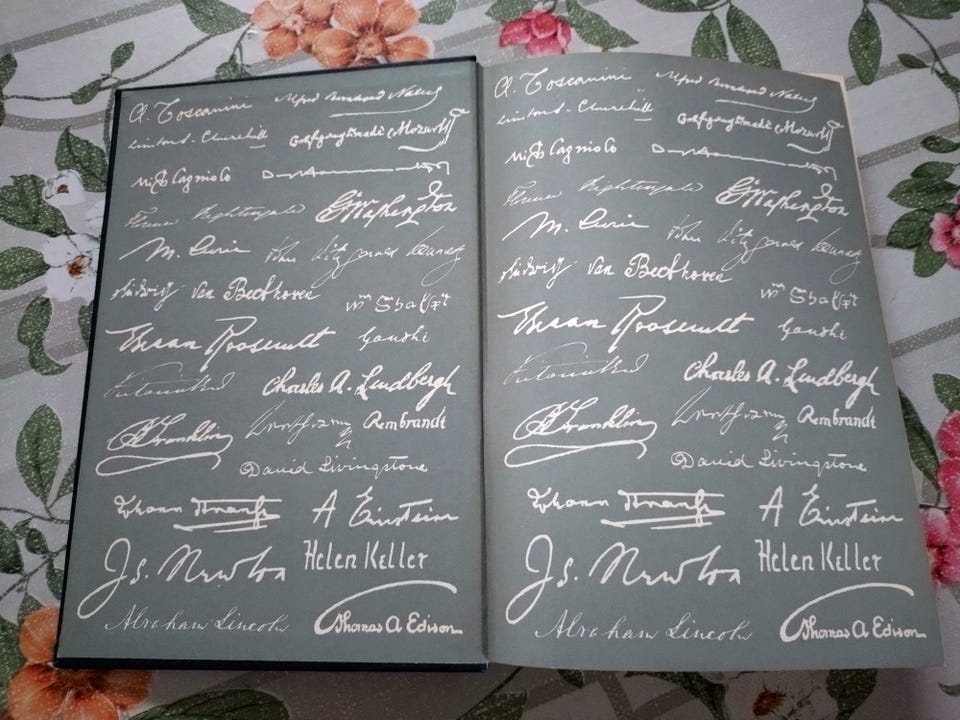 A. Toscanini Alfred Bernhard Nobel
Winston S. Churchill Wolfgang Amadè Mozart
Michelagniolo
Florence Nightingale G Washington
M. Curie John Fitzgerald Kennedy
Ludwig van Beethoven Wm Shakspt
Roosevelt Gandhi
Charles A. Lindbergh
B Franklin Rembrandt
David Livingstone
Johann Strauss A Einstein
Js. Newton Helen Keller
Abraham Lincoln Thomas A Edison
A. Toscanini Alfred Bernhard Nobel
Winston S. Churchill Wolfgang Amadè Mozart
Michelagniolo
Florence Nightingale G Washington
M. Curie John Fitzgerald Kennedy
Ludwig van Beethoven Wm Shakspt
Roosevelt Gandhi
Charles A. Lindbergh
B Franklin Rembrandt
David Livingstone
Johann Strauss A Einstein
Js. Newton Helen Keller
Abraham Lincoln Thomas A Edison